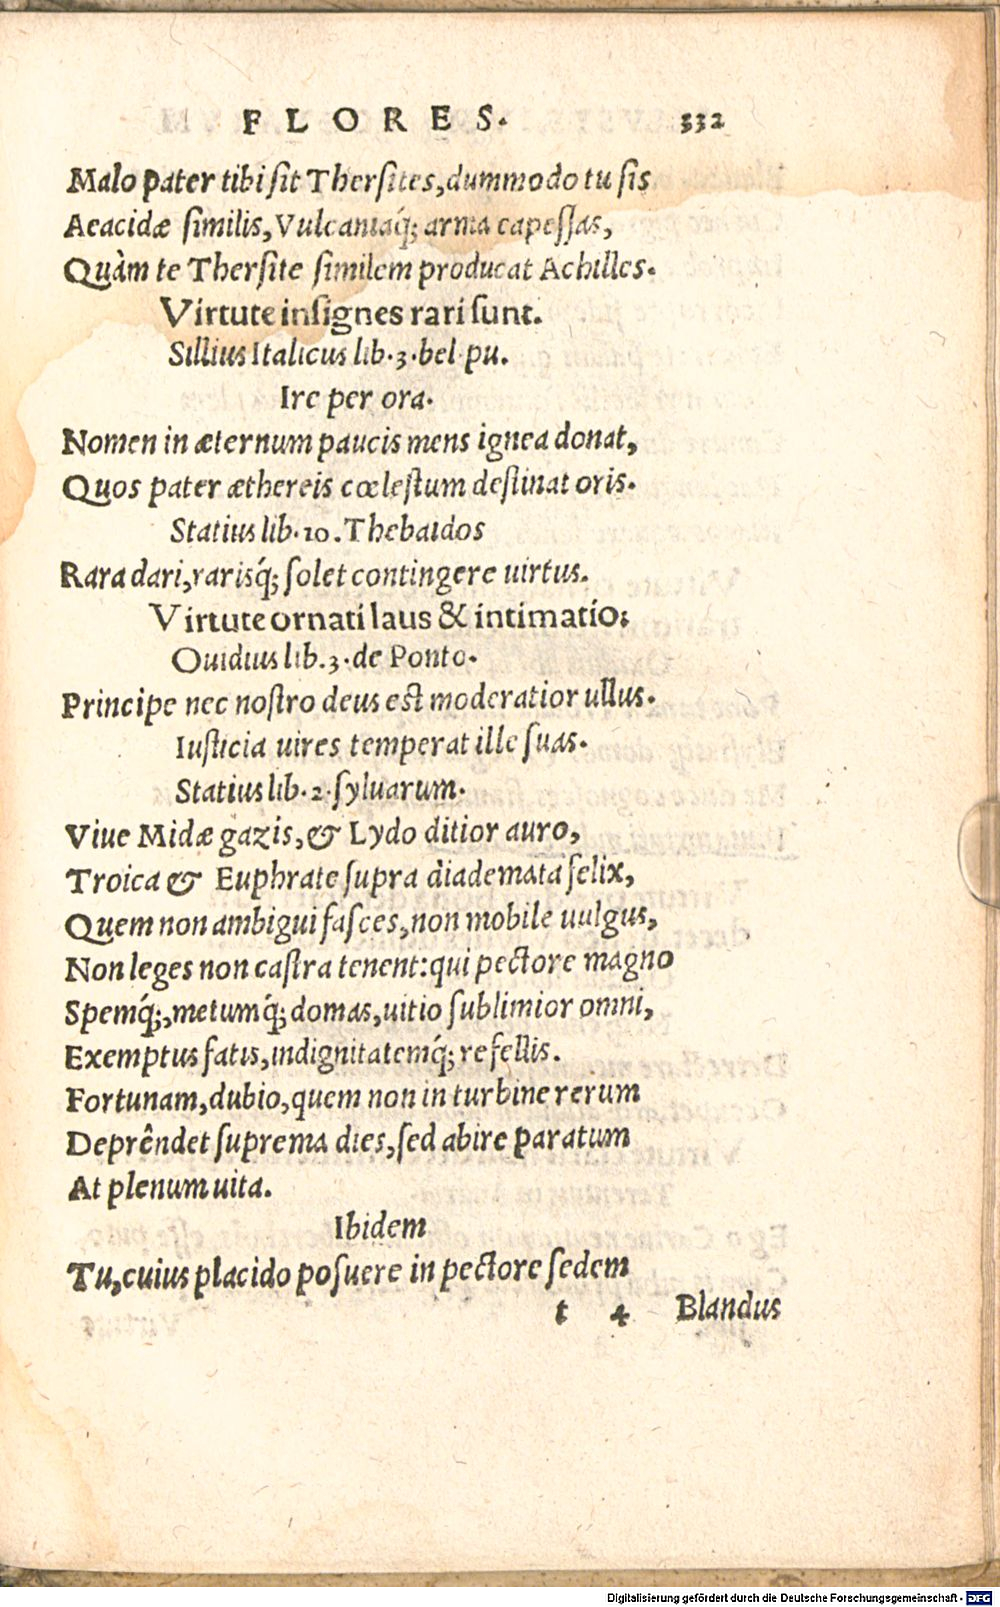 FLORES. 332
Malo pater tibi sit Thersites, dummodo tu sis
Aeacidæ similis, Vulcaniaq́; arma capessas,
Quàm te Thersite similem producat Achilles.
Virtute insignes rari sunt.
Sillius Italicus lib. 3. bel pu.
Ire per ora.
Nomen in æternum paucis mens ignea donat,
Quos pater æthereis cœlestum destinat oris.
Statius lib. 10. Thebaidos
Rara dari, rarisq́; solet contingere uirtus.
Virtute ornati laus & intimatio:
Ouidius lib. 3. de Ponto.
Principe nec nostro deus est moderatior ullus.
Iusticia uires temperat ille suas.
Statius lib. 2. syluarum.
Viue Midæ gazis, & Lydo ditior auro,
Troica & Euphrate supra diademata felix,
Quem non ambigui fasces, non mobile uulgus,
Non leges non castra tenent: qui pectore magno
Spemq́;, metumq́; domas, uitio sublimior omni,
Exemptus fatis, indignitatemq́; refellis.
Fortunam, dubio, quem non in turbine rerum
Deprêndet suprema dies, sed abire paratum
At plenum uita.
Ibidem
Tu, cuius placido posuere in pectore sedem
t 4 Blandus
Digitalisierung gefördert durch die Deutsche Forschungsgemeinschaft - DFG